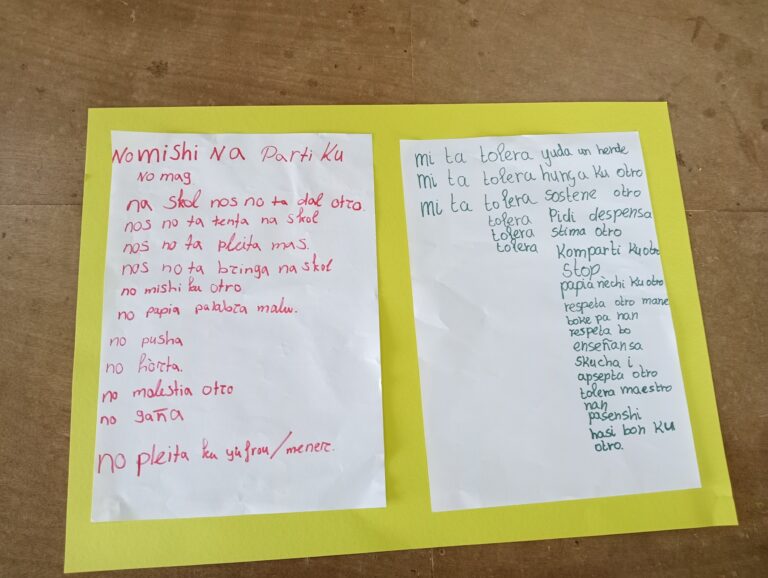 No mishi Na Parti Ku
No mag
na skol nos no ta dal otro.
nos no ta tenta na skol
nos no ta pleita mas.
nos no ta bringa na skol
no mishi ku otro
no papia palabra malu.
no pusha
no hòrta.
no molestia otro
no gaña
no pleita ku yufrou/meneer.
mi ta tolera yuda un herde
mi ta tolera hunga ku otro
mi ta tolera sostene otro
tolera Pidi despensa
tolera stima otro
tolera Komparti ku otro
stop
papia nèchi ku otro
respeta otro mane
boke pa nan
respeta bo
enseñansa
skucha i
apsepta otro
tolera maestro
nan
pasenshi
hasi bon ku
otro.